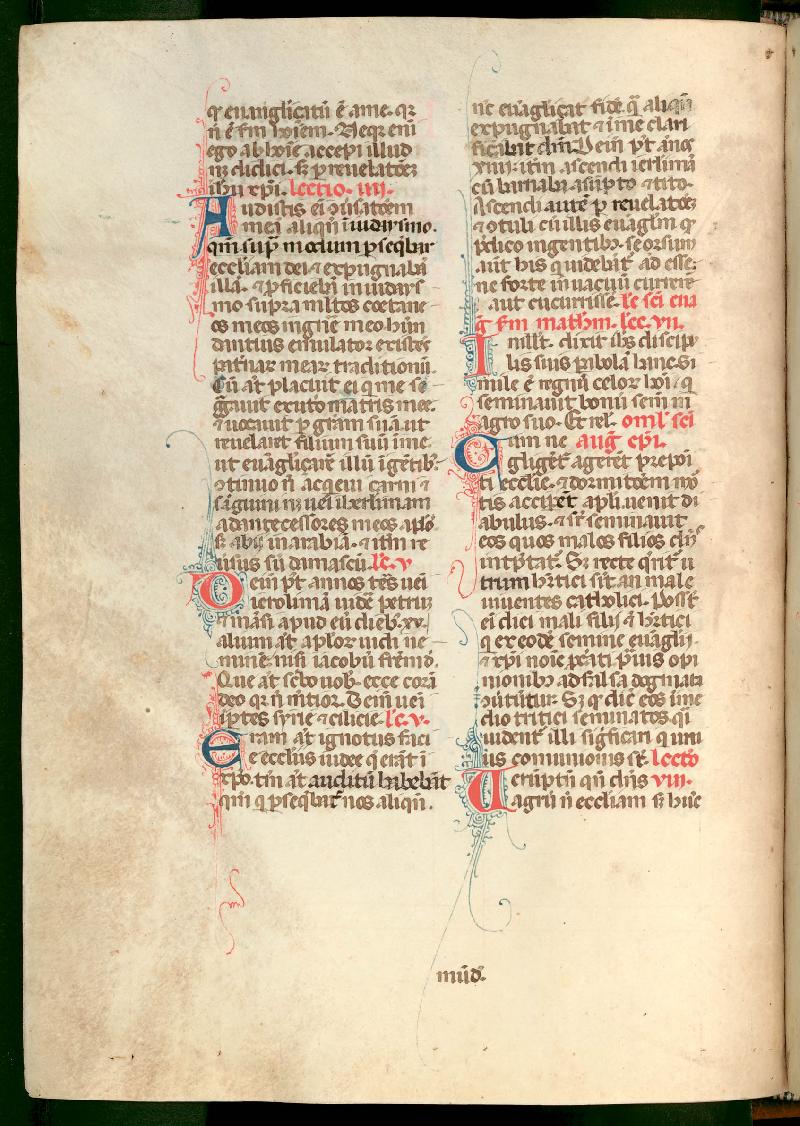 qͥ euanglicatū ē a me. qꝛ
nō ē fm hoiem. Neqꝫ eni
ego ab hoīe accepi illud
nꝫ didici. sꝫ ꝑ reuelatōeꝫ
ihu xpi. lectio. iiij.
Audistis ei ꝯūsatōem
meā aliqn̄ ī iudaysmo.
qm̄ sup̄ modum ꝑseqbar
eccliam dei ⁊ expugnabā
illā. ⁊ ꝓficiebā in iudays
mo supra ml̄tos coetane
os meos in gn̄e meo hūn
dantius emulator existēs
pat̄naꝝ meaꝝ traditionū.
Cū aūt placuit ei q me se
g̃gauit ex uto matris mee.
⁊ uocauit ꝑ grām suā ut
reuelaret filium suū ī me.
ut euāglicarē illū ī gētibꝫ
ꝯtinuo nō acqeui carni ⁊
sāguini nꝫ uēi iherlimam
ad antecessores meos aplōs
sꝫ abij in arabiā. ⁊ itm̄ re
uisus sū damascū. lc̄. v
Dein pt̄ annos tēs uēi
ierolimā uidē petrū
⁊ māsi apud eū dieb. xv.
alium at̄ aplōꝝ uidi ne
minē nisi iacobū frēm dō.
Que at̄ sc̄bo uob. ecce corā
deo qꝛ nō mtior. Dein uēi
ī ptes syrie ⁊ cilicie. lc̄. v.
Eram at̄ ignotus faci
e eccliis iudee q̄ erāt ī
xpo. tm̄ at̄ auditū habebāt
qm̄ q ꝑseqbat̄ nos aliqn̄.
nc euāglicat fidē. q̄ aliqn̄
expugnabat ⁊ ī me clari
ficabāt dm̄. Dein pt̄ ānos
xiiij. itm̄ ascendi ierlimā
cū barnaba asūpto ⁊ tito.
Ascendi autē ꝑ reuelatōeꝫ
⁊ ꝯtuli cū illis euāglm̄ qͥ
p̄dico in gentibꝫ. seorsum
aūt his q uidebāt̄ ad esse.
ne forte in uacuū currerē
aut cucurrisse. lc̄ sc̄i eua
g̃ fm mathm. lec. vij.
In illt̄. dixit ihs discip
lis suis pabolā hanc. Si
mile ē regnū celoꝝ hoi q
seminauit bonū semē in
agro suo. Et rel. oml. sc̄i
Cum ne aug̃ epi.
gligēt̄ agerēt p̄poi
ti ecclie. ⁊ dormitōem mō
tis accipēt apli. uenit di
abulus. ⁊ sr̄ seminauit
eos quos malos filios dn̄s
int̄ptat̄. Sꝫ recte qrit̄ u
trum hr̄tici sīt an male
uiuentes catholici. Possīt
ei dici mali filij ⁊ hr̄tici
q ex eodē semine euāglij
⁊ xpi noīe pc̄ati p̄uis opi
nionibꝫ ad falsa dogmata
ꝯūtūtur. Sꝫ qͥ dic̄ eos ī me
dio tritici seminatos. qi
uident̄ illi sigficari q uni
us comunionis st̄. lectō
Uerūptn̄ qn̄ dn̄s viij.
agrū nō eccliam sꝫ hūc
mūd.